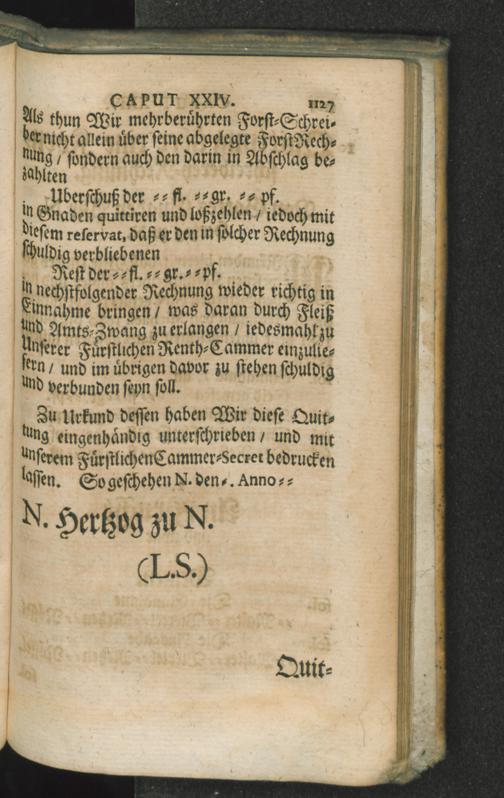 CAPUT XXIV. 1127
Als thun Wir mehrberührten Forst-Schrei-
ber nicht allein über seine abgelegte ForstRech-
nung / sondern auch den darin in Abschlag be-
zahlten
Uberschuß der -- fl. -- gr. -- pf.
in Gnaden quittiren und loßzehlen / iedoch mit
diesem reservat, daß er den in solcher Rechnung
schuldig verbliebenen
Rest der -- fl. -- gr. -- pf.
in nechstfolgender Rechnung wieder richtig in
Einnahme bringen / was daran durch Fleiß
und Amts-Zwang zu erlangen / iedesmahl zu
Unserer Fürstlichen Renth-Cammer einzulie-
fern / und im übrigen davor zu stehen schuldig
und verbunden seyn soll.
Zu Urkund dessen haben Wir diese Quit-
tung eingenhändig unterschrieben / und mit
unserem Fürstlichen Cammer-Secret bedrucken
lassen. So geschehen N. den -. Anno --
N. Hertzog zu N.
(L.S.)
Quit-